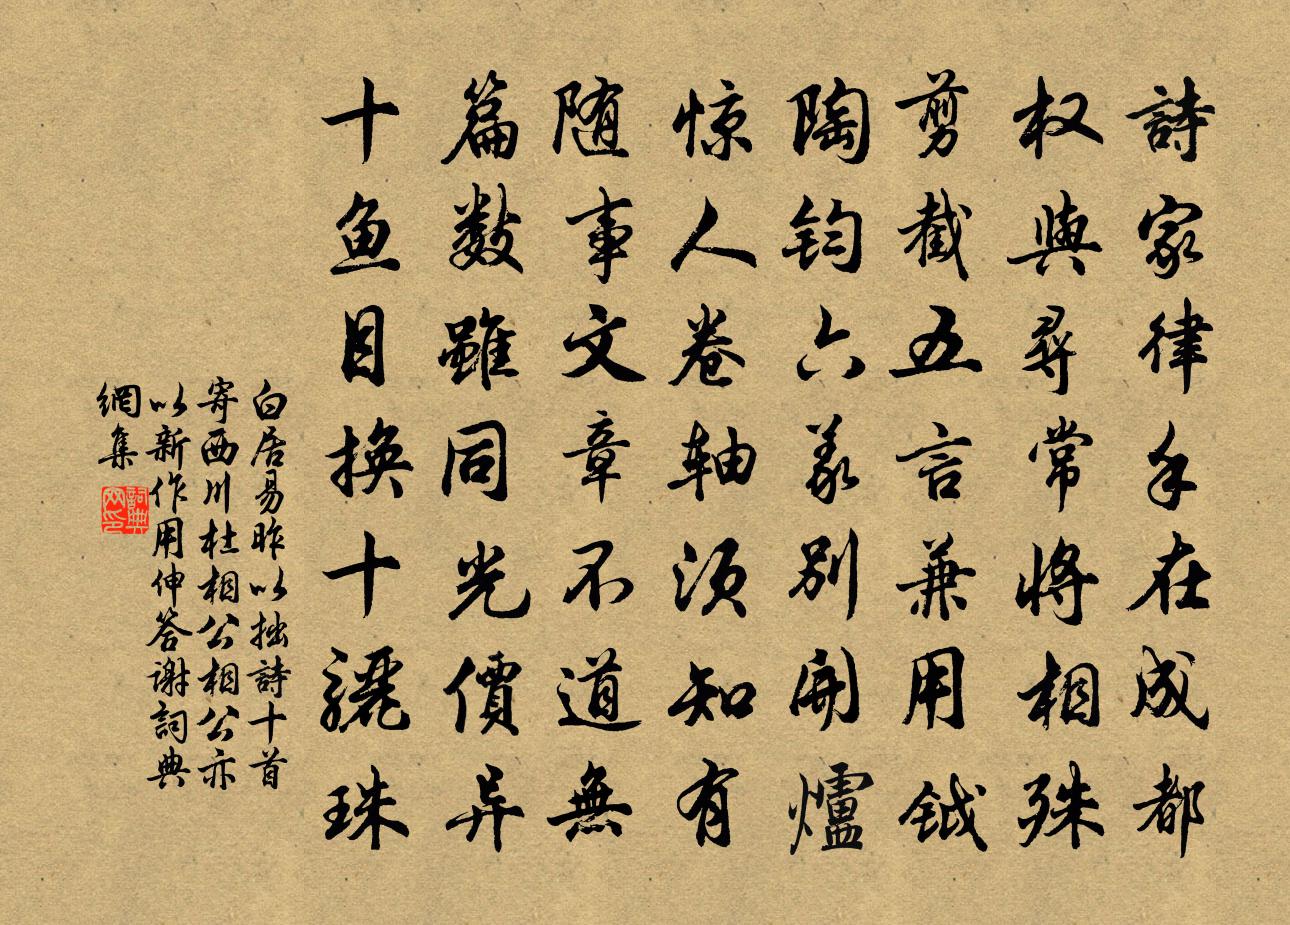 詩家律手在成都
权與尋常將相殊
剪截五言兼用钺
陶钧六義别開爐
惊人卷轴须知有
随事文章不道無
篇數雖同光價异
十鱼目換十驪珠
白居易昨以拙詩十首
寄西川杜相公相公亦
以新作用伸答謝詞典
網集
詞典
网印